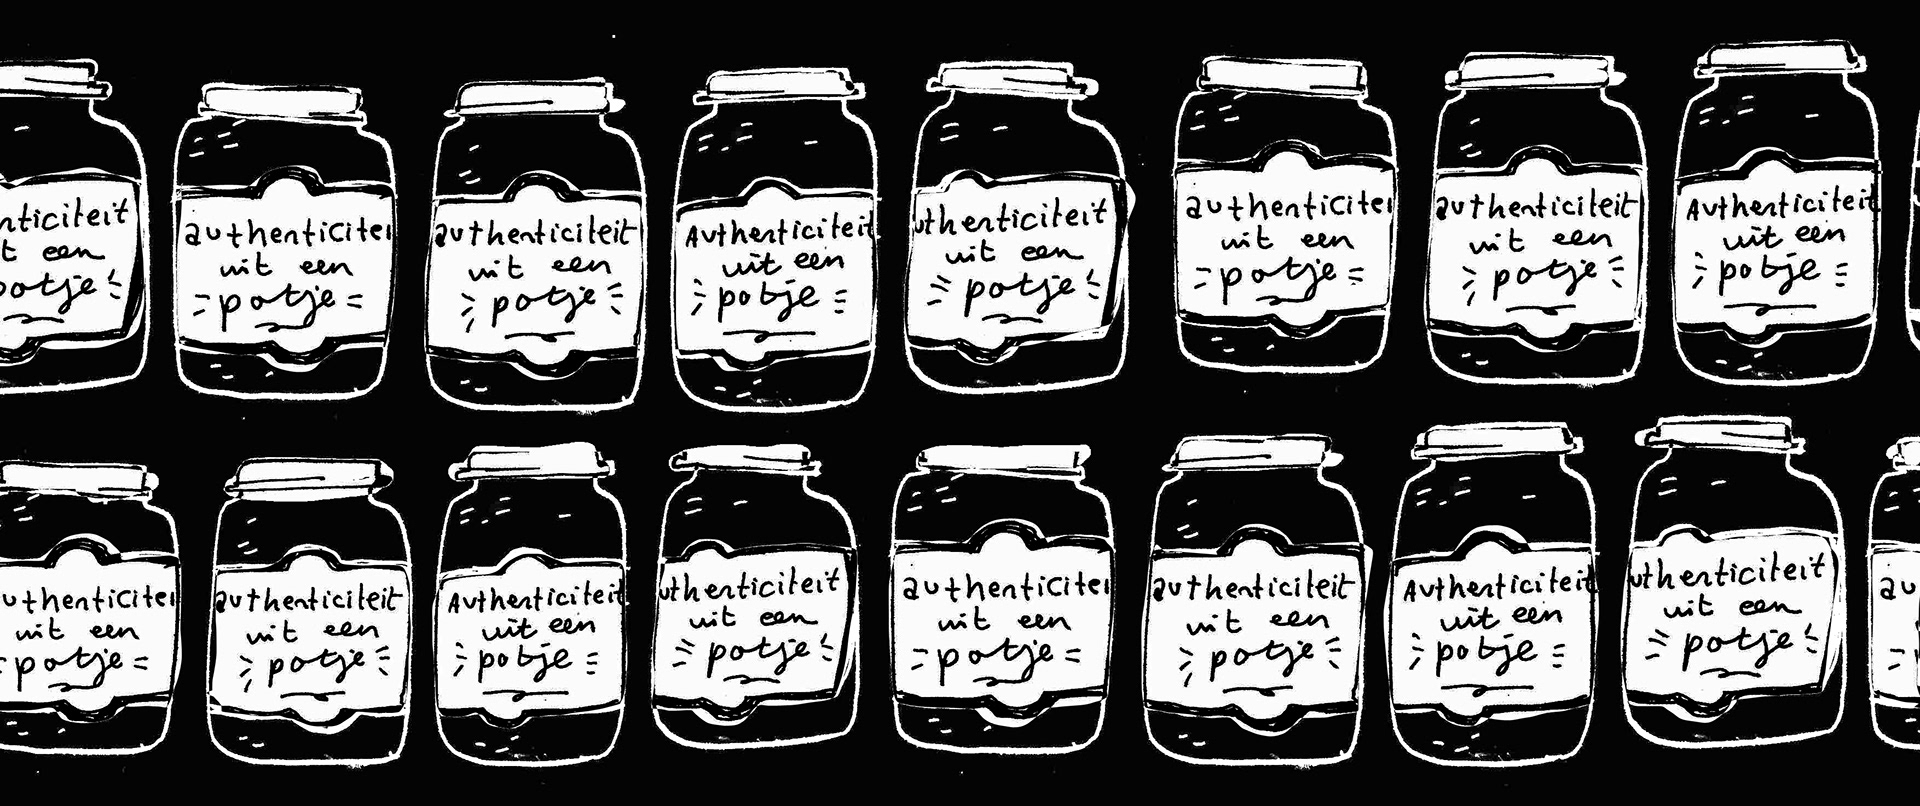 nticiteit
t een
potje
authenticitei
uit een
potje
authenticiteit
uit een
potje
Authenticiteit
uit een
potje
uthenticiteit
uit een
potje
authenticitei
uit een
potje
authenticiteit
uit een
potje
Authenticiteit
uit een
potje
uthenticitei
uit een
potje
authenticiteit
uit een
potje
Authenticiteit
uit een
potje
uthenticiteit
uit een
potje
authenticitei
uit een
potje
authenticiteit
uit een
potje
Authenticiteit
uit een
potje
uthenticiteit
uit een
potje
au